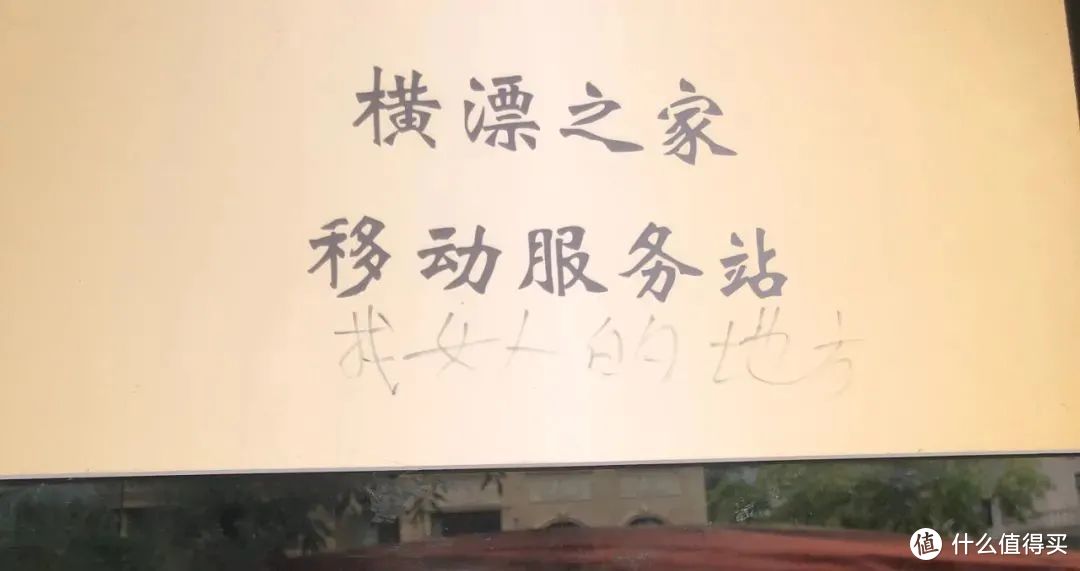 横漂之家
移动服务站
找女人的地方
值 什么值得买